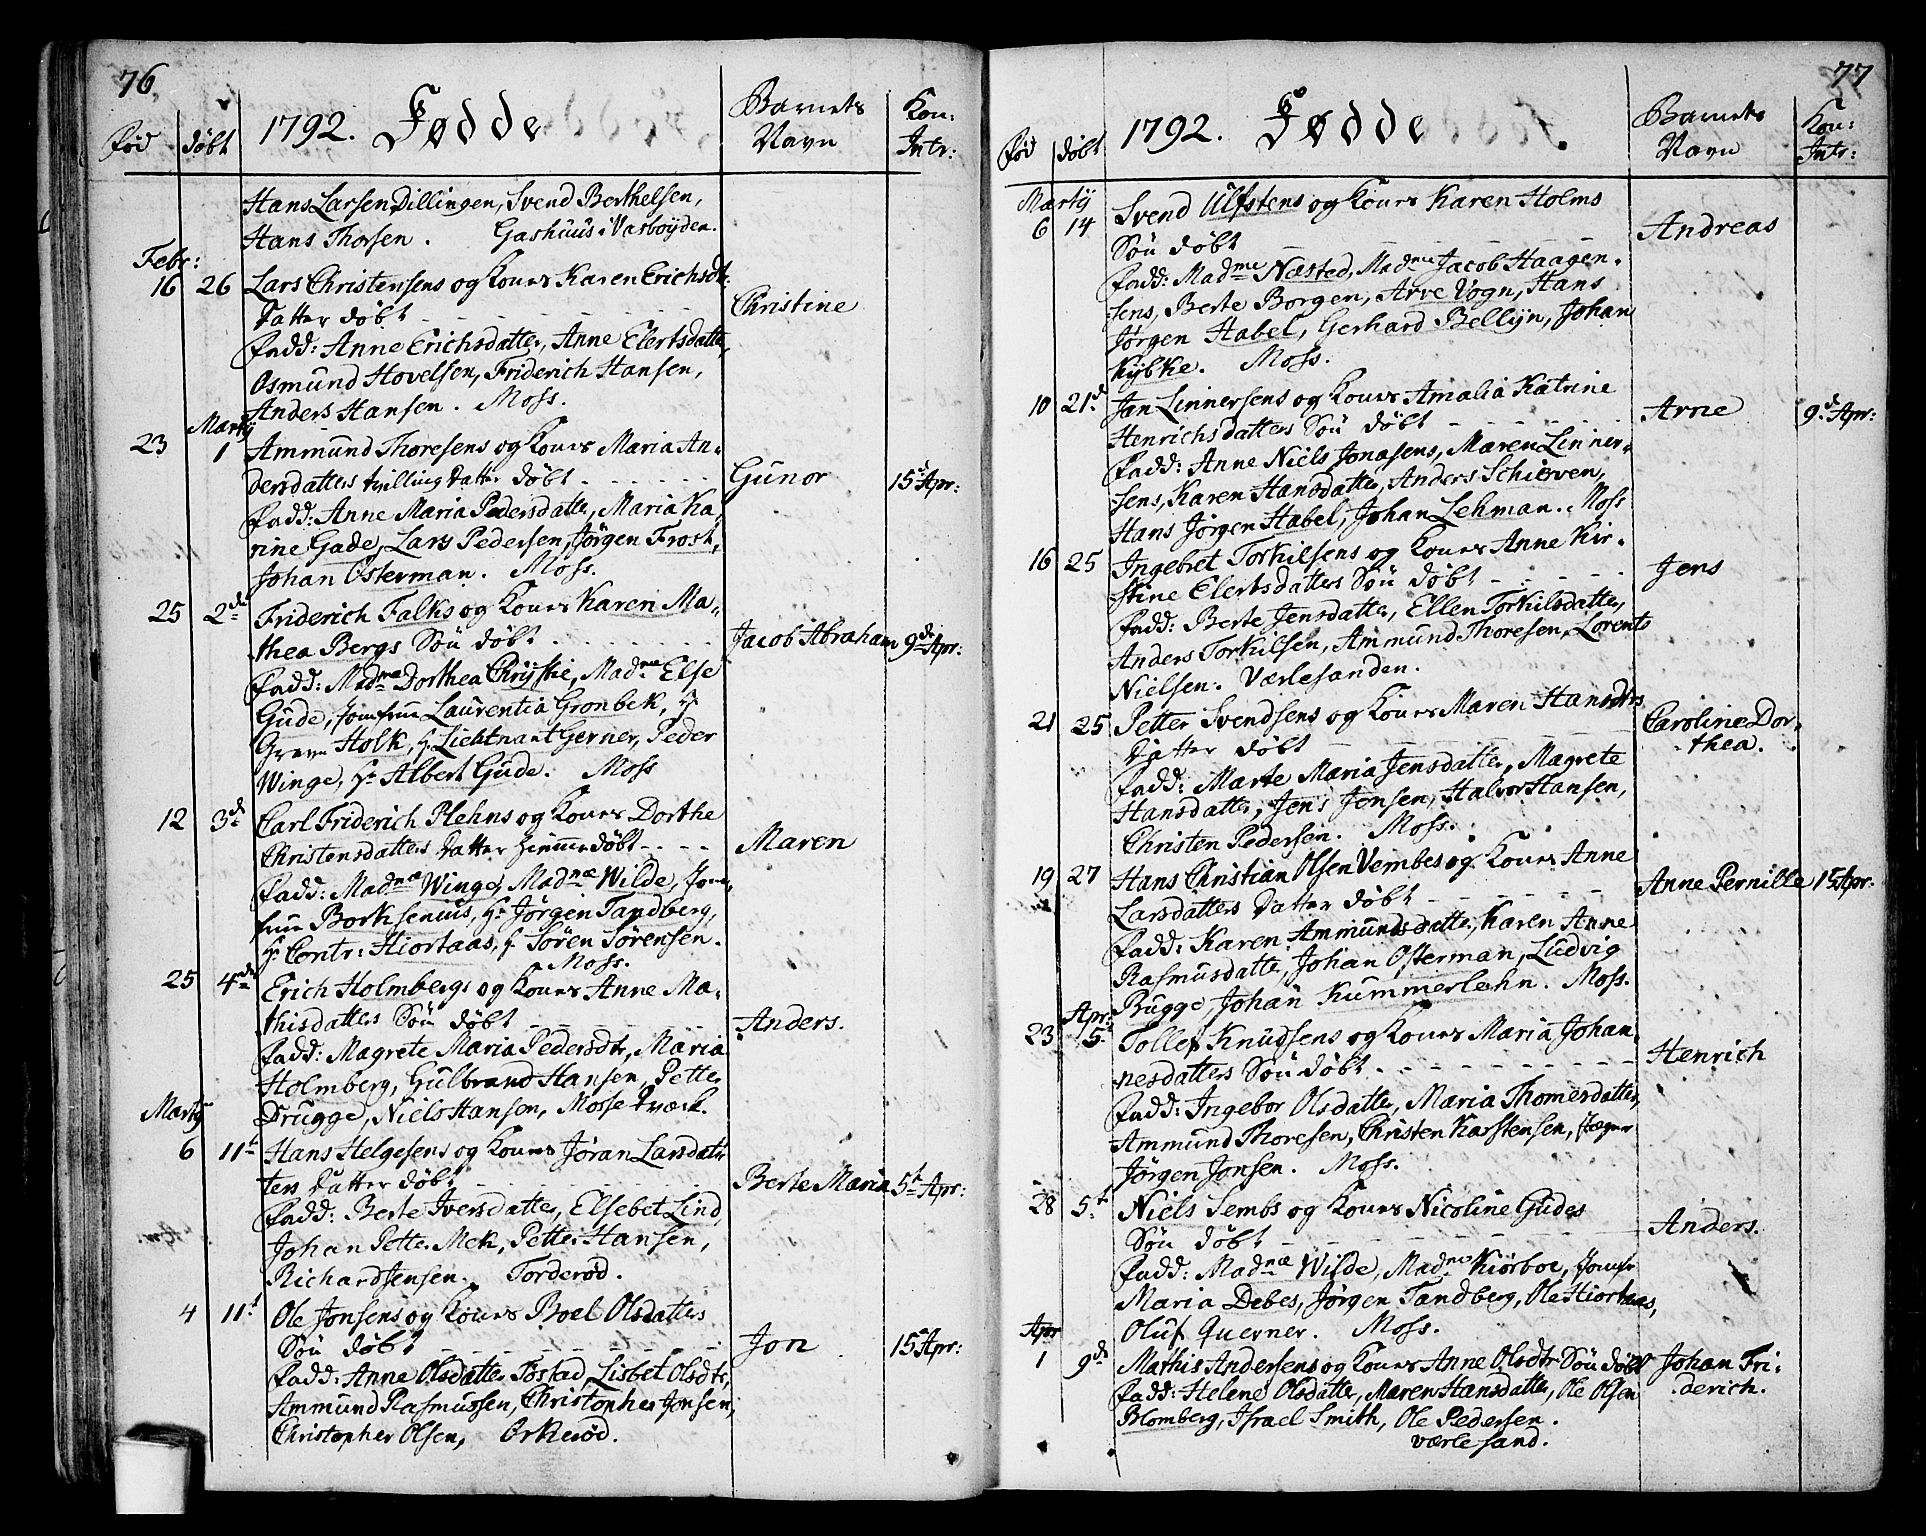 76
Fød
døbt
1792. Fødde
Barnets
Navn
Kon:
Intr:
Hans Larsen Dillingen, Svend Berthelsen,
Hans Thorsen. Gashuus i Vasbøyden.
Febr:
16 26 Lars Christensens og Kones Karen Erichsdtr
Datter døbt Christine
Fadd: Anne Erichsdatter, Anne Elertsdatter,
Osmund Hovelsen, Friderich Hansen,
Anders Hansen. Moss.
Martÿ
23 1 Ammund Thoresens og Kones Maria An-
dersdatters tvilling datter døbt Gunor 15 Apr:
Fadd: Anne Maria Pedersdatter, Maria Ka-
rine Gade, Lars Pedersen, Jørgen Frost,
Johan Osterman. Moss.
25 2d Friderich Falks og Kones Karen Ma-
thea Bergs Søn døbt Jacob Abraham 9d Apr:
Fadd: Madme Dorthea Chrÿstie, Madme Else
Gude, Jomfrue Laurentia Gronbek, Hr
Greve Holk, Hr Lieutnant Gerner, Peder
Winge, Hr Albert Gude. Moss
12 3d Carl Friderich Plehns og Kones Dorthe
Christensdatters datter hiemmedøbt Maren
Fadd: Madme Winge, Madme Wilde, Jom-
frue Borksenius, Hr Jørgen Tandberg,
Hr Contr: Hiortaas, Hr Sören Sörensen.
Moss.
25 4de Erich Holmbergs og Kones Anne Ma-
thisdatters Søn døbt Anders.
Fadd: Magrete Maria Pedersdtr, Maria
Holmberg, Gulbrand Hansen, Petter
Drugge, Niels Hansen, Mosse Værk.
Martÿ
6 11t Hans Helgesens og Kones Jøran Larsdat-
ters datter døbt Berte Maria 5t Apr:
Fadd: Berte Iversdatter, Elsebet Lind,
Johan Petter Mek, Petter Hansen,
Richard Jensen. Torderød.
4 11t Ole Jonsens og Kones Boel Olsdatters
Søn døbt Jon 15 Apr:
Fadd: Anne Olsdatter Tostad, Lisbet Olsdtr,
Ammund Rasmussen, Christopher Jonsen,
Christopher Olsen, Orkerød.
77
Fød
døbt
1792. Fødde.
Barnets
Navn
Kon:
Intr:
Martÿ
6 14 Svend Ulfstens og Kones Karen Holms
Søn døbt Andreas
Fadd: Madme Næsted, Madme Jacob Haagen-
sens, Berte Borgen, Arve Vogn, Hans
Jørgen Habel, Gerhard Bellÿn, Johan
Kÿbke. Moss.
10 21d Jan Linnersens og Kones Amalia Katrine
Henrichsdatters Søn døbt Arne 9d Apr:
Fadd: Anne Niels Jonasens, Maren Linner-
sens, Karen Hansdatter, Anders Schierven,
Hans Jørgen Habel, Johan Lehman. Moss
16 25 Ingebret Torkilsens og Kones Anne Kir-
stine Elertsdatters Søn døbt Jens
Fadd: Berte Jensdatter, Ellen Torkilsdatter,
Anders Torkilsen, Ammund Thoresen, Lorents
Nielsen. Værlesanden.
21 25 Petter Svendsens og Kones Maren Hansdtrs
Datter døbt Caroline Dor-
thea.
Fadd: Marte Maria Jensdatter, Magrete
Hansdatter, Jens Jensen, Halvor Hansen,
Christen Pedersen. Moss.
19 27 Hans Christian Olsen Vembes og Kones Anne
Larsdatters Datter døbt Anne Pernille 15 Apr:
Fadd: Karen Ammundsdatter, Karen Anne
Rasmusdatter, Johan Osterman, Ludvig
Bugge, Johan Kummerlehn. Moss.
Apr:
23 5t Tollef Knudsens og Kones Maria Johan-
nesdatters Søn døbt Henrich
Fadd: Ingebor Olsdatter, Maria Thomesdatter,
Ammund Thoresen, Christen Karstensen,
Jørgen Jonsen. Moss.
28 5t Niels Sembs og Kones Nicoline Gudes
Søn døbt Anders.
Fadd: Madme Wilde, Madme Kiörboe, Jomfr
Maria Debes, Jørgen Tandberg, Ole Hiorthaas,
Oluf Querner. Moss.
Apr
1 9de Mathis Andersens og Kones Anne Olsdtr Søn døbt Johan Fri-
derich.
Fadd: Helene Olsdatter, Maren Hansdatter, Ole Olsen
Blomberg, Israel Smith, Ole Pedersen.
Værlesand.